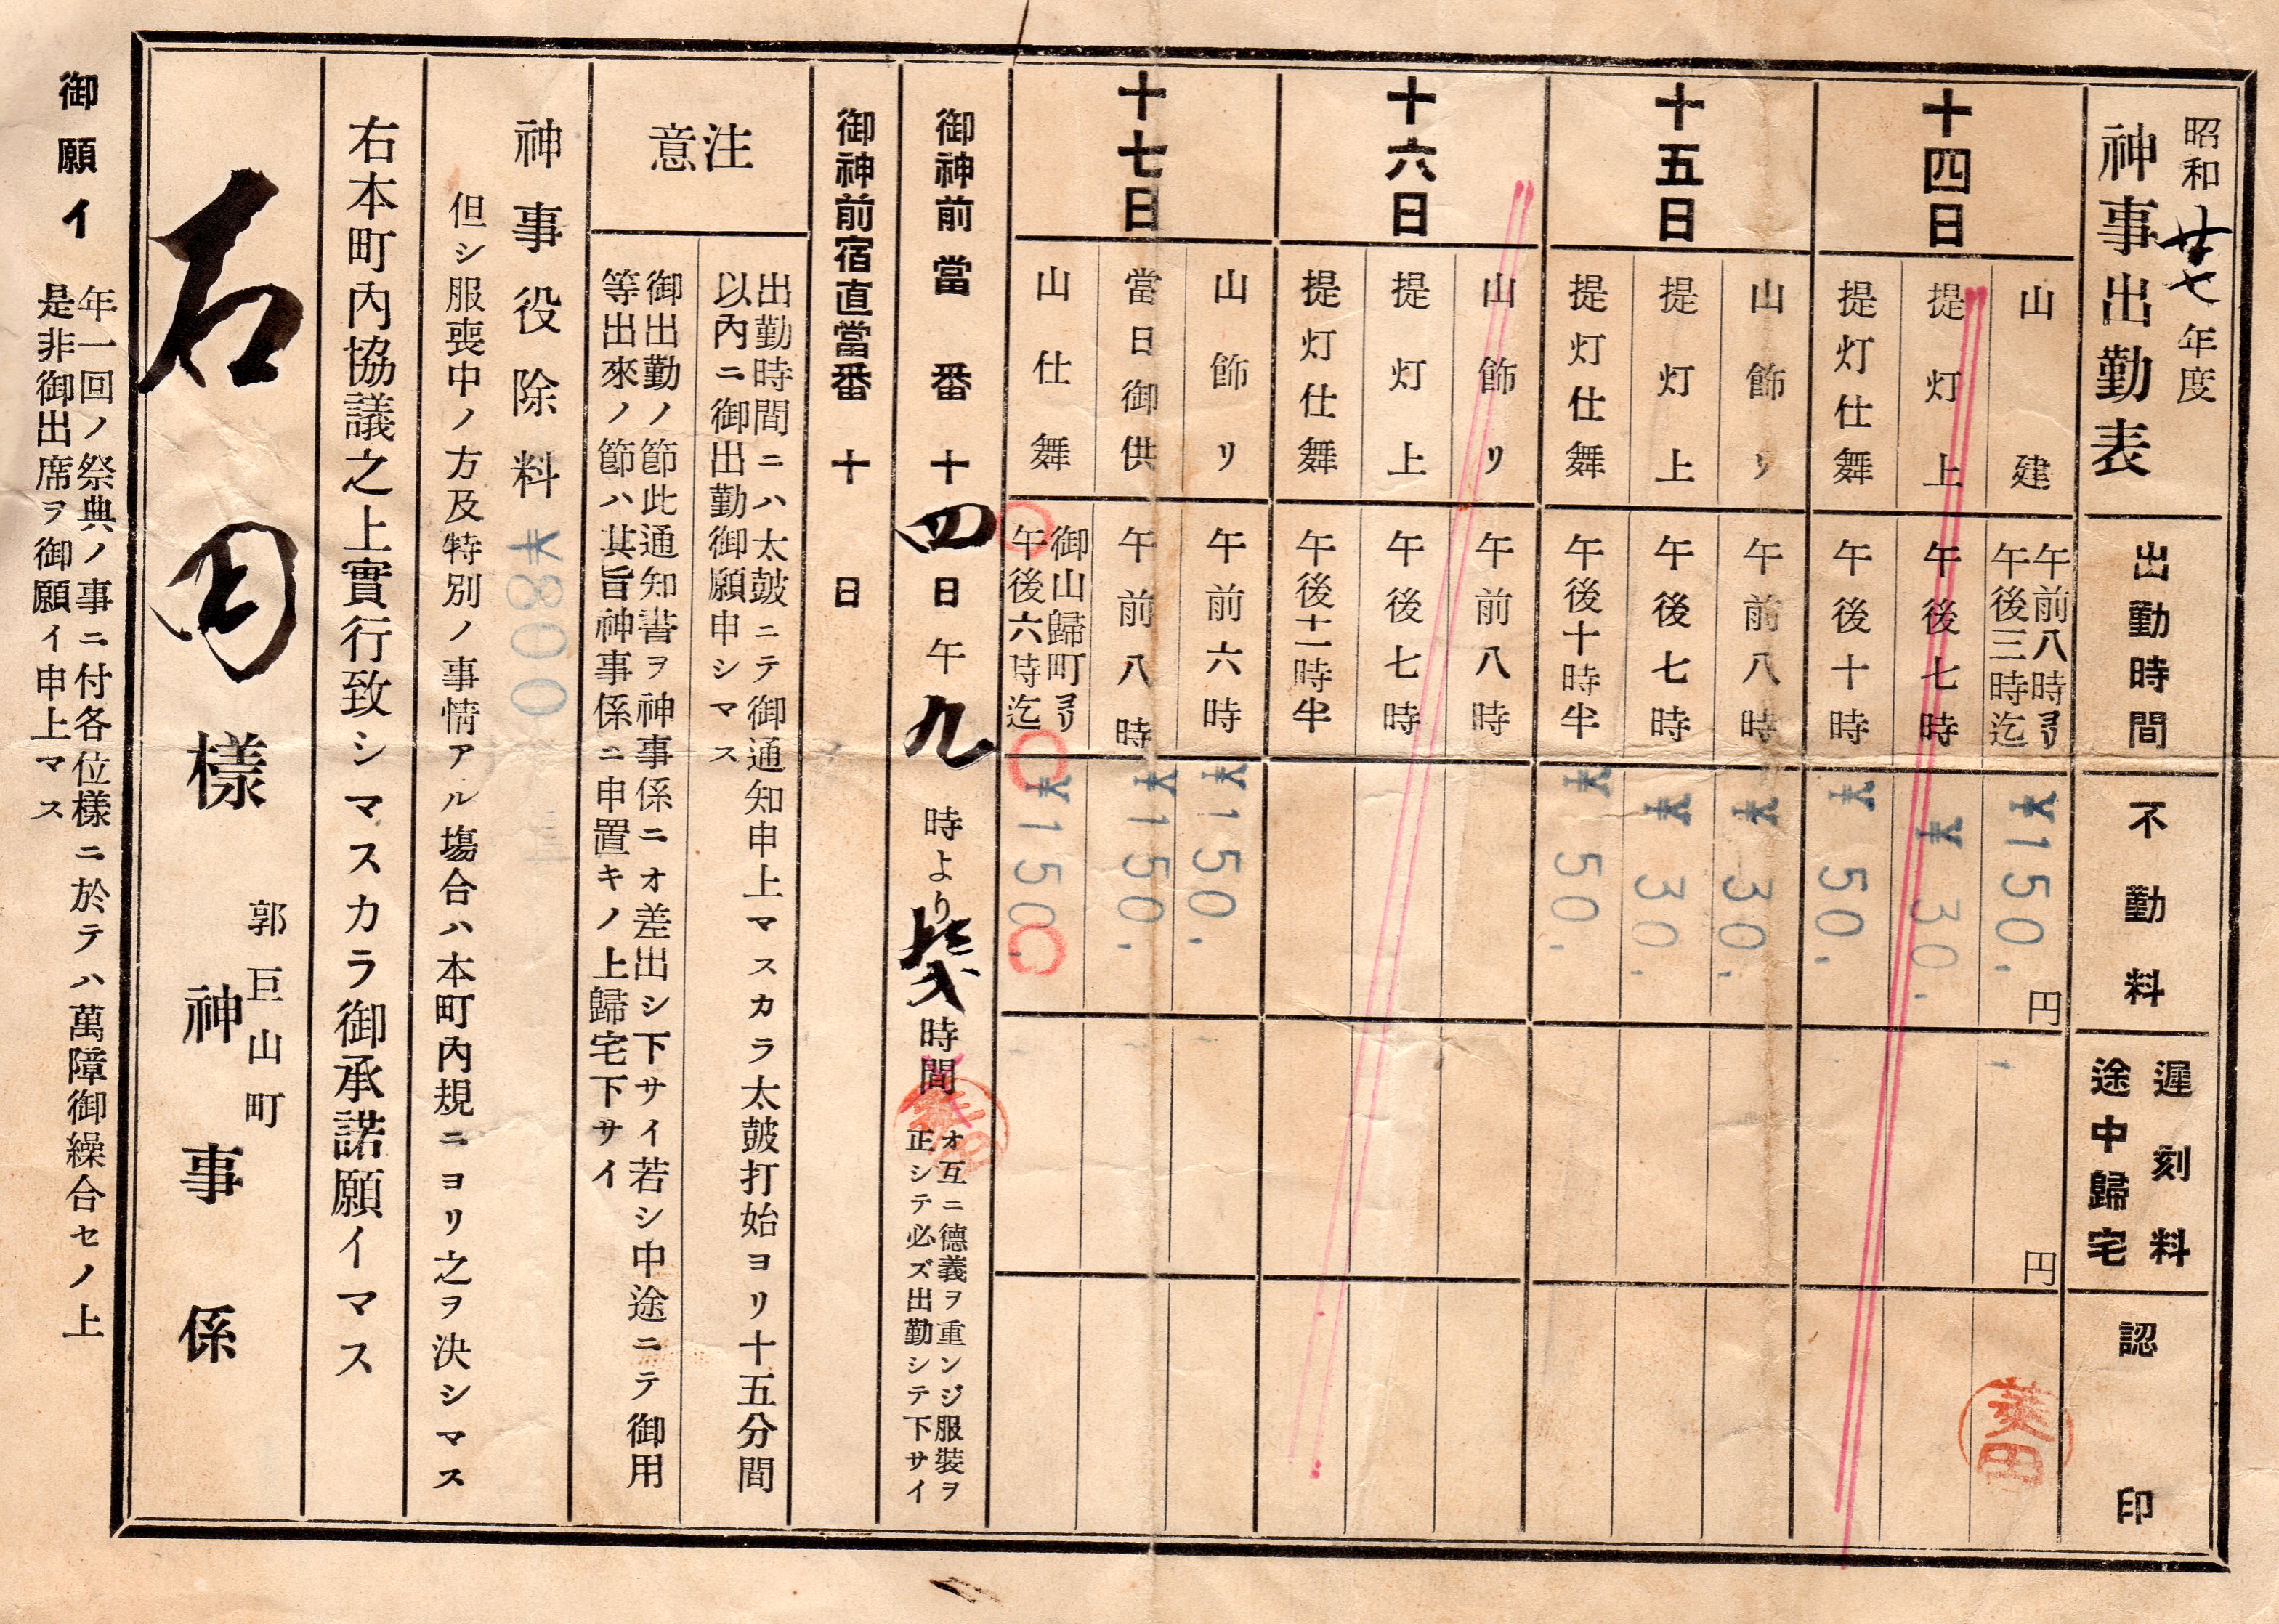 昭和廿七年度
神事出勤表
出勤時間
不勤料
遲刻料
途中歸宅
認印
十四日
山建
午前八時ヨリ
午後三時迄
¥150.
円
円
提灯上
午後七時
¥30.
提灯仕舞
午後十時
¥50.
十五日
山飾リ
午前八時
¥30.
提灯上
午後七時
¥30.
提灯仕舞
午後十時半
¥50.
十六日
山飾リ
午前八時
提灯上
午後七時
提灯仕舞
午後十一時半
十七日
山飾リ
午前六時
¥150.
當日御供
午前八時
¥150.
山仕舞
御山歸町ヨリ
午後六時迄
¥150.
御神前當番十四日午九時より時間
オ互ニ德義ヲ重ンジ服裝ヲ
正シテ必ズ出勤シテ下サイ
御神前宿直當番十日
注意
出勤時間ニハ太鼓ニテ御通知申上マスカラ太鼓打始ヨリ十五分間
以內ニ御出勤御願申シマス
御出勤ノ節此通知書ヲ神事係ニオ差出シ下サイ若シ中途ニテ御用
等出來ノ節ハ其旨神事係ニ申置キノ上歸宅下サイ
神事役除料 ¥800
但シ服喪中ノ方及特別ノ事情アル場合ハ本町內規ニヨリ之ヲ決シマス
右本町內協議之上實行致シマスカラ御承諾願イマス
石田樣
郭巨山町
神事係
御願イ
年一回ノ祭典ノ事ニ付各位樣ニ於テハ萬障御繰合セノ上
是非御出席ヲ御願イ申上マス